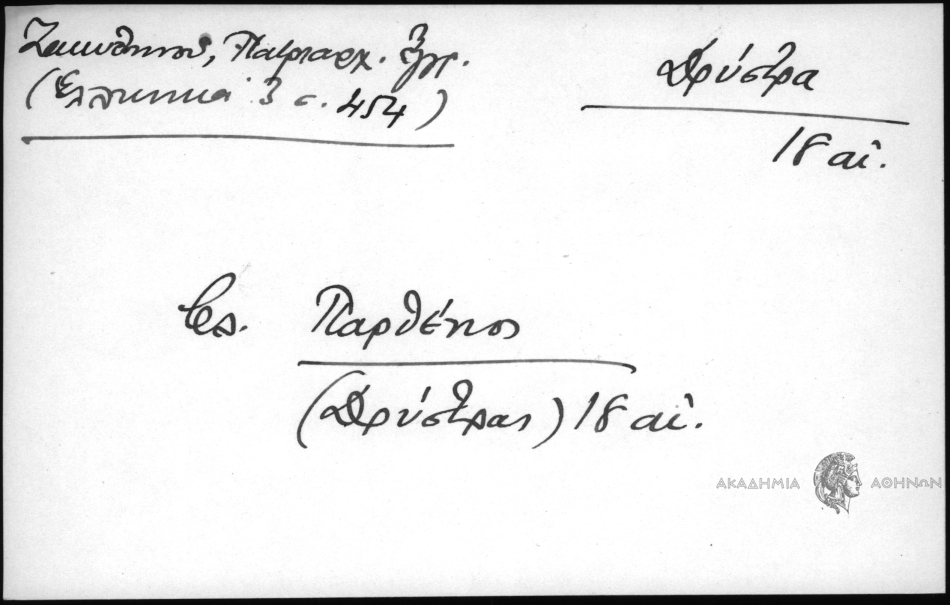 Ζακυθηνοῦ, Πατριαρχ. Ἔγγ.
(Ἑλληνικά 3 σ. 454)
Δρύστρα
18 αἰ.
βλ. Παρθένιος
(Δρύστρας) 18 αἰ.
ΑΚΑΔΗΜΙΑ ΑΘΗΝΩΝ